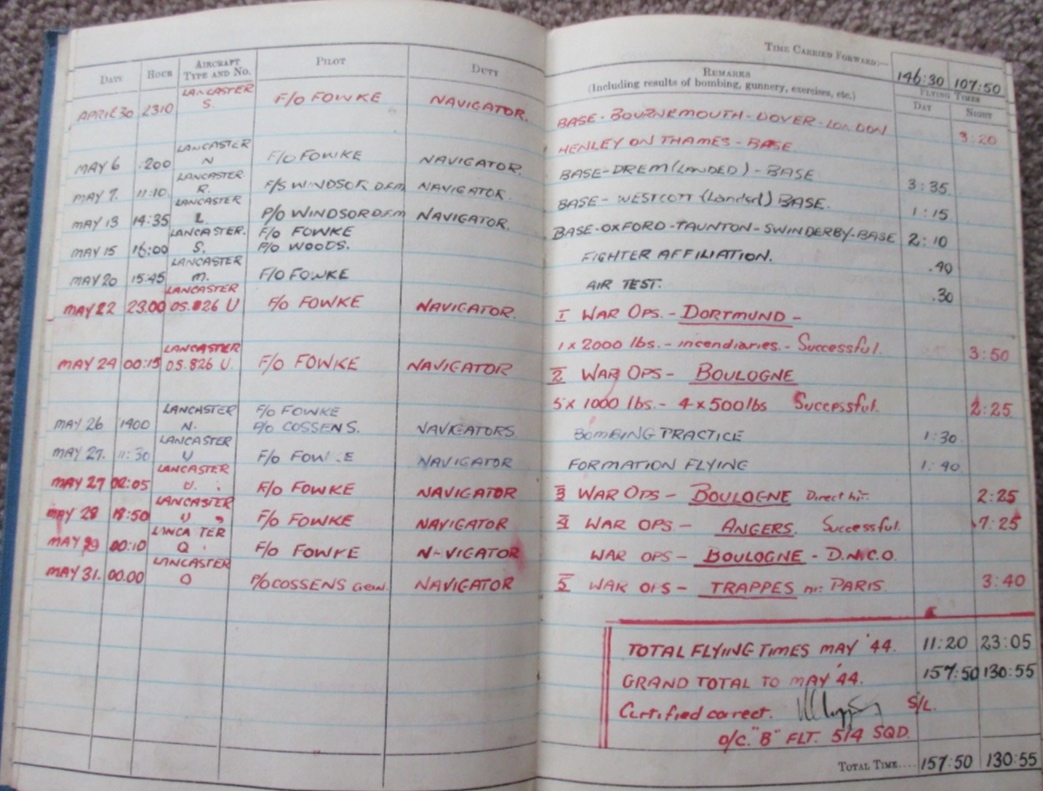 TIME CARRIED FORWARD:— 146:30 107:50
DATE HOUR AIRCRAFT TYPE AND NO. PILOT DUTY REMARKS (Including results of bombing, gunnery, exercises, etc.) FLYING TIMES DAY NIGHT
APRIL 30 2310 LANCASTER S. F/O FOWKE NAVIGATOR. BASE - BOURNEMOUTH - DOVER - LONDON
HENLEY ON THAMES - BASE 3:20
MAY 6 .200 LANCASTER N F/O FOWKE NAVIGATOR. BASE-DREM (LANDED) - BASE 3:35
MAY 7. 11:10. LANCASTER R. F/S WINDSOR DFM NAVIGATOR. BASE - WESTCOTT (Landed) BASE. 1:15
MAY 13 14:35 LANCASTER L P/O WINDSOR DFM NAVIGATOR. BASE-OXFORD-TAUNTON-SWINDERBY-BASE 2:10
MAY 15 16:00 LANCASTER. S. F/O FOWKE P/O WOODS. FIGHTER AFFILIATION. .40
MAY 20 15:45 LANCASTER M. F/O FOWKE AIR TEST. .30
MAY 22 23.00 LANCASTER DS.826 U F/O FOWKE NAVIGATOR. 1 WAR OPS. - DORTMUND -
1 x 2000 lbs. - incendiaries. - Successful. 3:50
MAY 24 00:15 LANCASTER DS.826 U. F/O FOWKE NAVIGATOR 2 WAR OPS - BOULOGNE
5 x 1000 lbs. - 4 x 500 lbs Successful. 2:25
MAY 26 1400 LANCASTER N. F/O FOWKE P/O COSSENS. NAVIGATORS BOMBING PRACTICE 1:30
MAY 27. 11:30 LANCASTER U F/O FOW.E NAVIGATOR FORMATION FLYING 1:40
MAY 27 02:05 LANCASTER U. F/O FOWKE NAVIGATOR 3 WAR OPS - BOULOGNE Direct hit. 2:25
MAY 28 18:50 LANCASTER U F/O FOWKE NAVIGATOR 4 WAR OPS - ANGERS. Successful. 7:25
MAY 29 00:10 LANCA TER Q. F/O FOWKE N-VIGATOR WAR OPS - BOULOGNE - D.N.C.O.
MAY 31. 00.00 LANCASTER O P/O COSSENS NAVIGATOR 5 WAR OPS - TRAPPES nr. PARIS. 3:40
TOTAL FLYING TIMES MAY '44. 11:20 23:05
GRAND TOTAL TO MAY '44. 157:50 130:55
Certified correct. S/L.
O/C. "B" FLT. 514 SQD.
TOTAL TIME.... 157:50 130:55